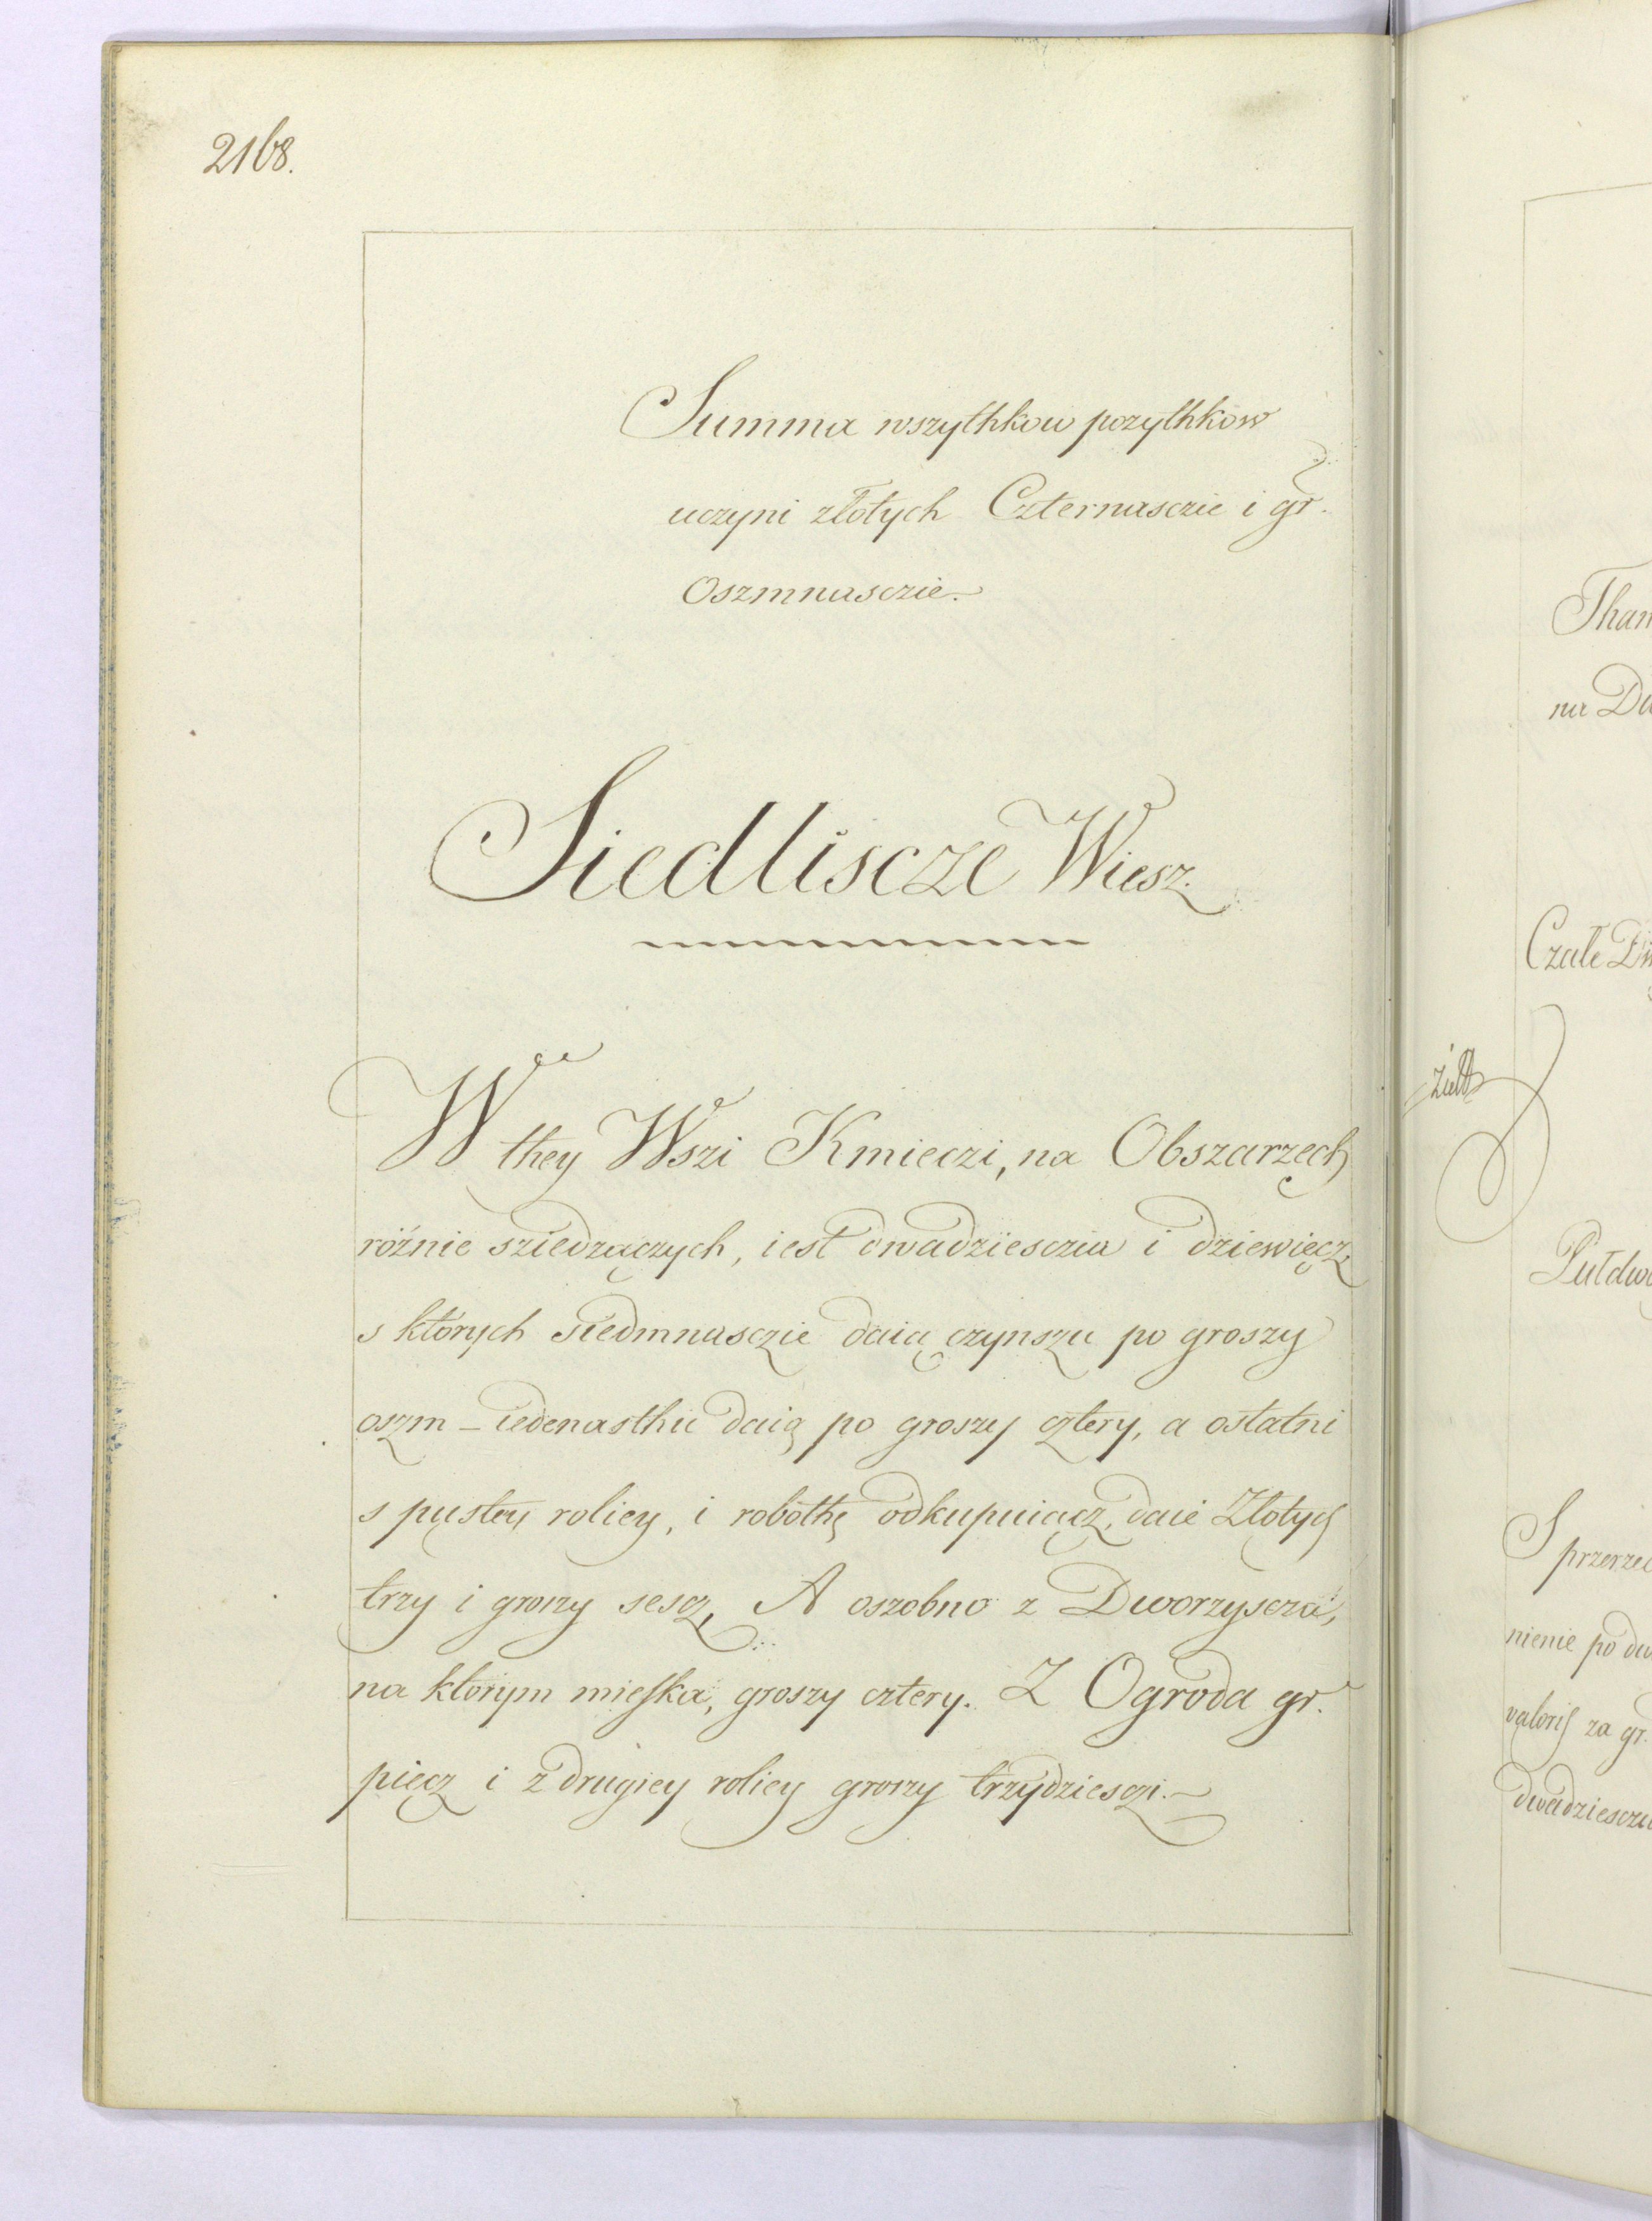 2168.
Summa wszythkow pozythkow
uczyni złotych Czternasczie i gr.
Oszmnasczie.
Siedliscze Wiesz.
W they Wszi Kmieczi, na Obszarzech
różnie sziedzączych, iest dwadziesczia i dziewięcz
s których siedmnasczie daią czynszu po groszy
oszm – iedenasthu daią po groszy cztery, a ostatni
s pustey roliey, i robothę odkupuiącz, daie Złotych
trzy i groszy sescz, A oszobno z Dworzyscza,
na ktorym mieszka, groszy cztery. Z Ogroda gr.
pięcz i z drugiey roliey groszy trzydziesczi.
Than
na Du
Czałe Dw
Pułdwo
S przerzec
nienie po dw
valoris za gr.
dwadziesczu